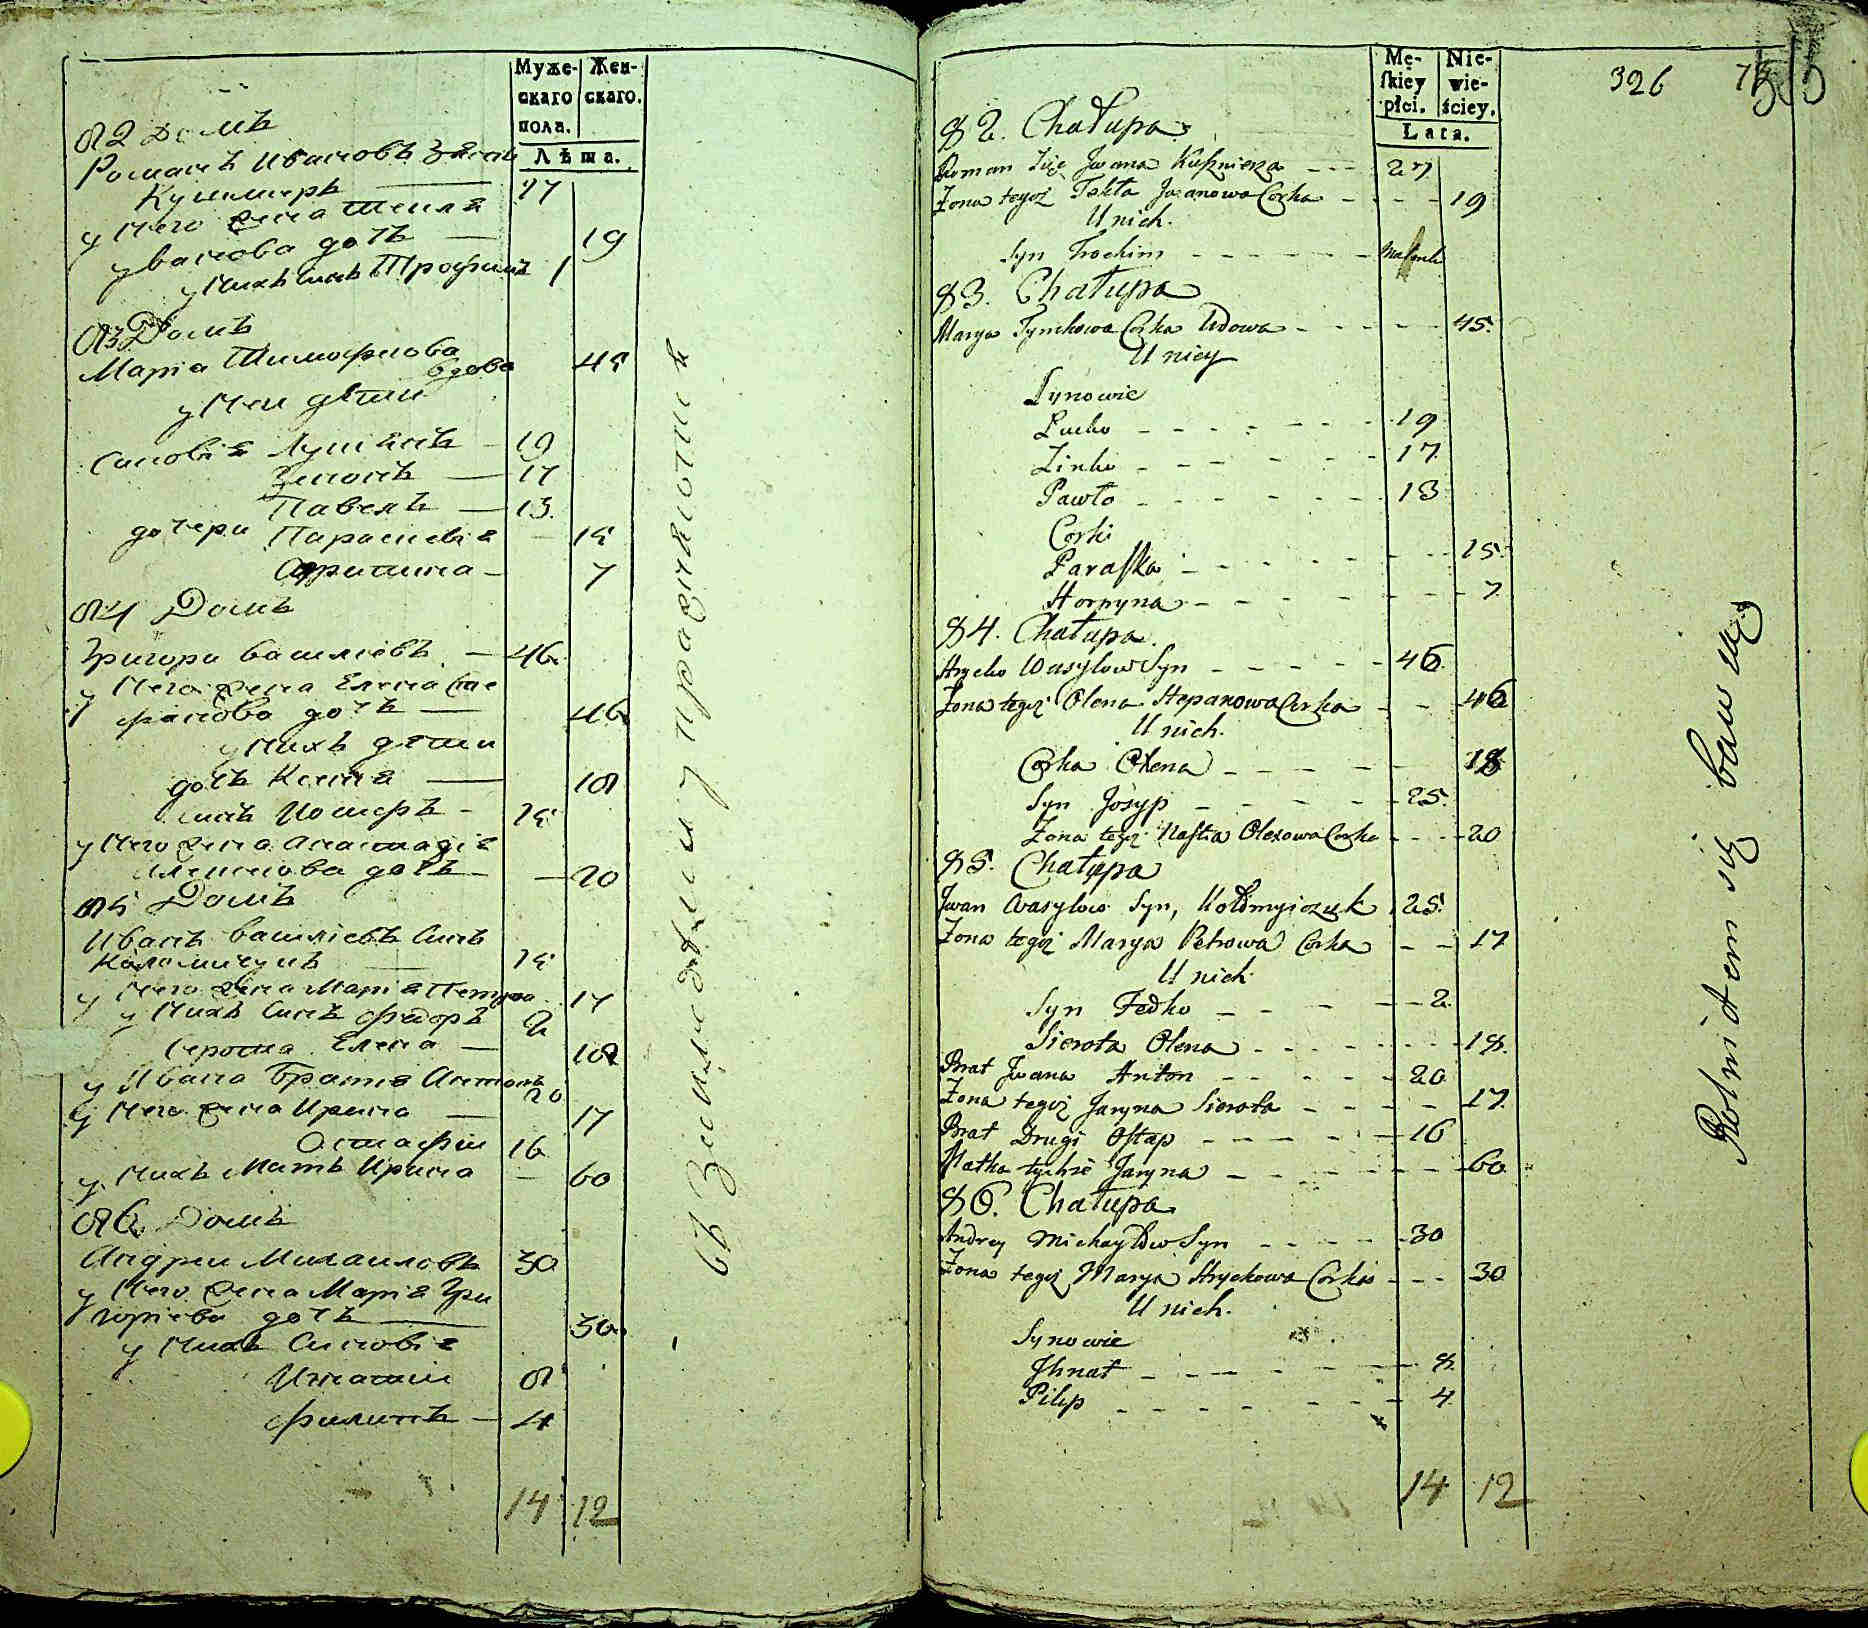 Муже-
скаго
пола.
Жен-
скаго.
Лѣта.
82 Домъ
Романъ Ивановъ Зять
Кушнеръ — 27
у него жена Текля
Иванова дочъ — 19
у нихъ сынъ Трофимъ 1
83 Домъ
Марія Тимофѣева
вдова 45
у ней дѣти
Синовія Лукіянъ — 19
Зенонъ — 17
Павелъ — 13
дочери Параскевія — 15
Агрипина — 7
84 Домъ
Григори Василіевъ — 46
у него жена Елена Сте
фанова дочъ — 46
у нихъ дѣти
дочъ Ксенія — 18
синъ Иосифъ — 25
у него жена Анастасія
Алексѣова дочъ — 20
85 Домъ
Иванъ Василіевъ Синъ
Коломичукъ — 25
у него жена Марія Петрова 17
у нихъ Синъ Федоръ 2
Сирота Елена — 18
у Ивана Братія Антонъ 20
у него жена Ирина — 17
Остафіи 16
у нихъ Мать Ирина — 60
86 Домъ
Андреи Михаиловъ 30
у него жена Марія Гри
горіева дочъ — 30
у нихъ Синовія
Игнатіи 8
Филипъ — 4
14 12
въ Земледѣліи упражняются
326
Mę-
skiey
płci.
Nie-
wie-
ściey.
Lata.
82. Chałupa
Roman Zięć Jwana Kuśznierza - - - 27
Zona tegoż Tekla Jwanowa Corka - - - - 19
U nich.
Syn Trochim - - - - - -
83. Chałupa
Marya Tymkowa Corka Wdowa - - - - - 45.
U niey
Synowie
Lucko - - - - - - 19
Zinko - - - - - 17
Pawło - - - - - 13
Corki
Paraska - - - - - - 15.
Horpyna - - - - - - 7
84. Chałupa.
Hrycko Wasylow Syn - - - - - 46.
Zona tegoż Olena Stepanowa Corka - - - 46
U nich.
Corka Olena - - - - 18
Syn Josyp - - - - - 25.
Zona tegoż Nastia Olexowa Corka - - - 20
85. Chałupa
Jwan Wasylow Syn, Kołomyiczuk 25.
Zona tegoż Marya Petrowa Corka - - 17
U nich
Syn Fedko - - - - - 2.
Sierota Olena - - - - - - - 18.
Brat Jwana Anton - - - - - 20
Zona tegoż Jaryna Sierota - - - - 17.
Brat Drugi Ostap - - - - - 16
Matka tychże Jaryna - - - - - - - 60
86. Chałupa
Andrey Michayłow Syn - - - - - 30
Zona tegoż Marya Hryckowa Corka - - - 30
U nich.
Synowie
Jhnat - - - - - - - 8.
Pilip - - - - - - - 4
14 12
Rolnictwem się bawią